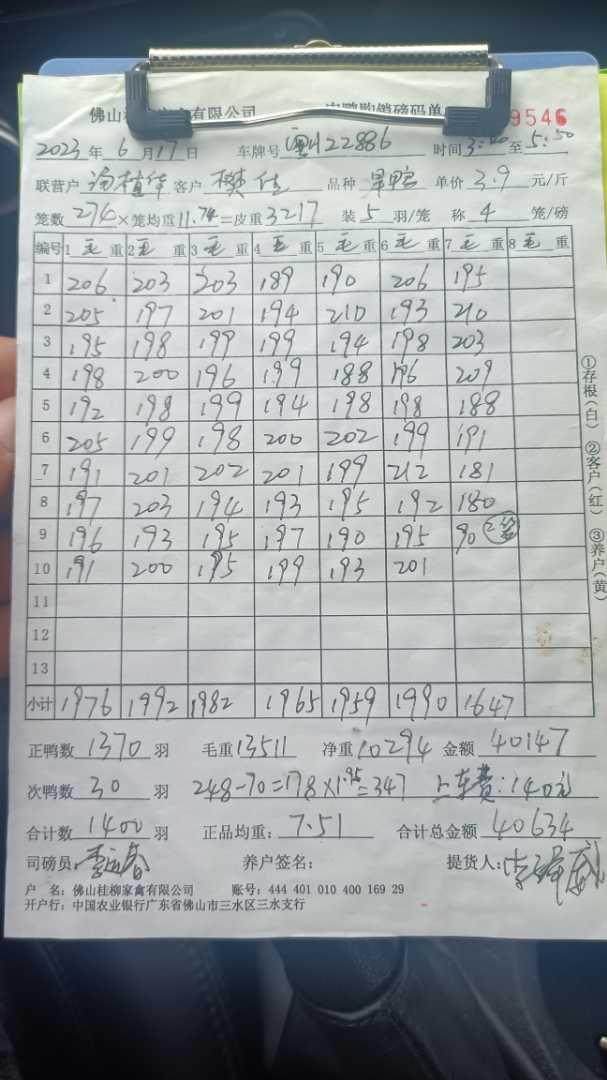 佛山桂柳家禽有限公司 肉鸭购销磅码单 9546
2023年6月17日 车牌号 22886 时间3:20至5:50
联营户 汤植华 客户 樊佳 品种 旱鸭 单价 3.9 元/斤
笼数 274×笼均重11.74=皮重3217 装5羽/笼 称4笼/磅
编号 1毛重 2毛重 3毛重 4毛重 5毛重 6毛重 7毛重 8毛重
1 206 203 203 189 190 206 195
2 205 197 201 194 210 193 210
3 195 198 199 199 194 198 203
4 198 200 196 199 188 196 209
5 192 198 199 194 198 198 188
6 205 199 198 200 202 199 191
7 191 201 202 201 199 212 181
8 197 203 194 193 195 192 180
9 196 193 195 197 190 195 90 2笼
10 191 200 195 199 193 201
11
12
13
小计 1976 1992 1982 1965 1959 1990 1647
正鸭数 1370 羽 毛重13511 净重10294 金额 40147
次鸭数 30 羽 248-70=178×1.95=347 上车费:140元
合计数 1400 羽 正品均重: 7.51 合计总金额 40634
司磅员: 养户签名: 提货人:
户 名: 佛山桂柳家禽有限公司 账号: 444 401 010 400 169 29
开户行: 中国农业银行广东省佛山市三水区三水支行
①存根(白) ②客户(红) ③养户(黄)